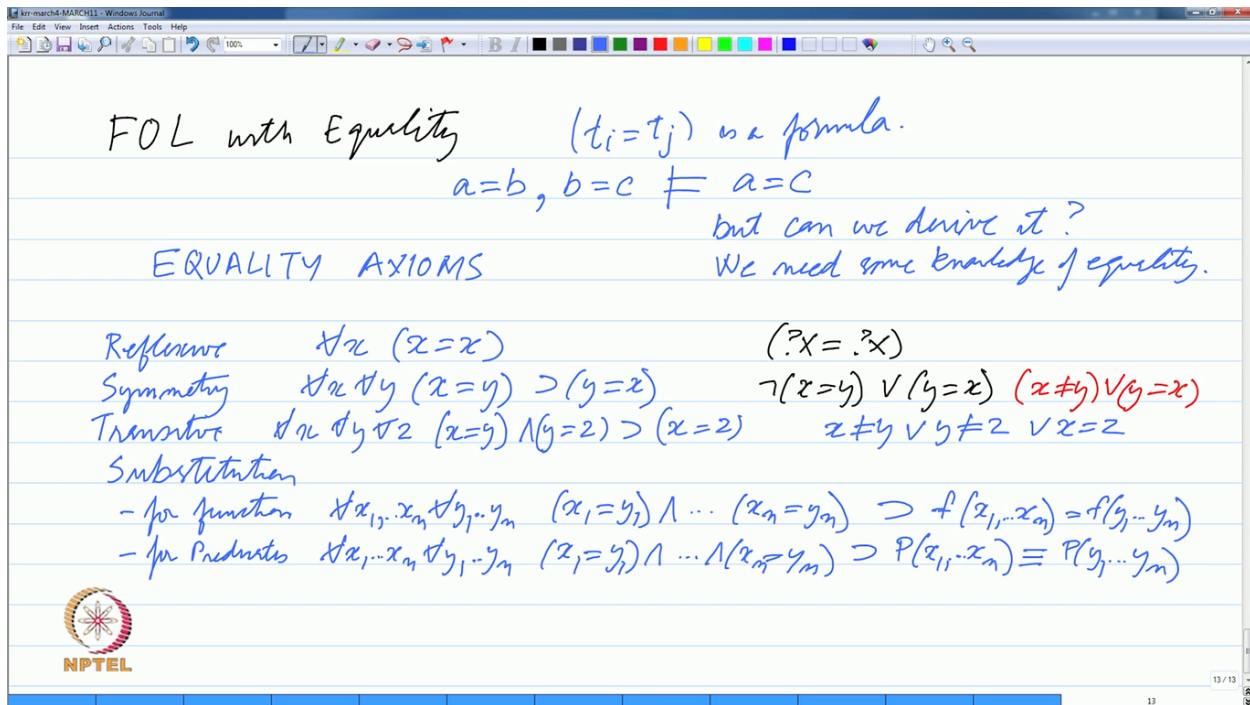 krr-march4-MARCH11 - Windows Journal
File Edit View Insert Actions Tools Help
100%
B I
FOL with Equality (ti = tj) is a formula.
a=b, b=c ⊨ a=c
but can we derive it?
EQUALITY AXIOMS We need some knowledge of equality.
Reflexive ∀x (x=x) (?x = ?x)
Symmetry ∀x ∀y (x=y) ⊃ (y=x) ¬(x=y) ∨ (y=x) (x≠y)∨(y=x)
Transitive ∀x ∀y ∀z (x=y) ∧(y=z) ⊃ (x=z) x≠y ∨ y≠z ∨ x=z
Substitution
- for function ∀x1,..xn ∀y1..yn (x1=y1) ∧ ... (xn=yn) ⊃ f(x1,..xn) = f(y1..yn)
- for Predicates ∀x1...xn ∀y1..yn (x1=y1) ∧ ... ∧(xn=yn) ⊃ P(x1,..xn) ≡ P(y1...yn)
NPTEL
13 / 13
13